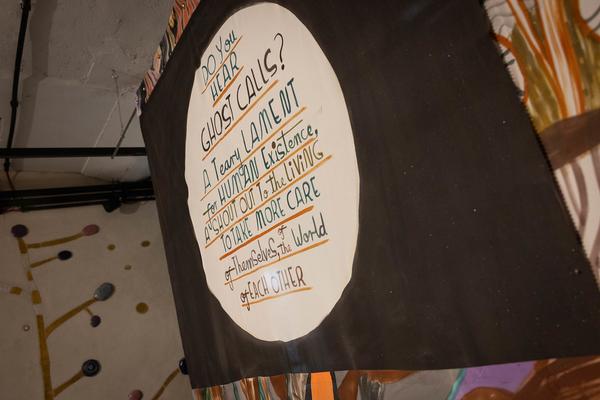 DO YOU
HEAR
GHOST CALLS?
A Teary LAMENT
for HUMAN Existence,
A SHOUT OUT To the LIVING
TO TAKE MORE CARE
of Themselves, of the World
of EACH OTHER